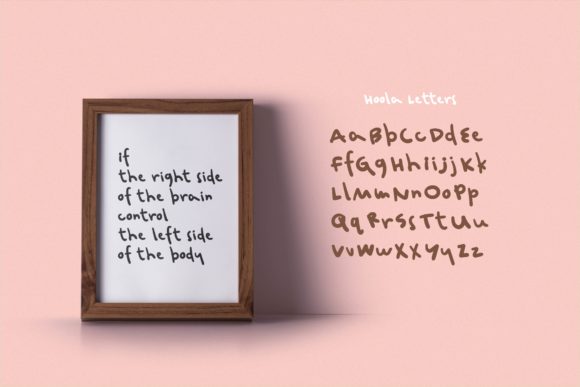 if
the right side
of the brain
control
the left side
of the body
Hoola Letters
AaBbCcDdEe
FfGgHhiijjKk
LlMmNnOoPp
QqRrSsTtUu
VvWwXxYyZz